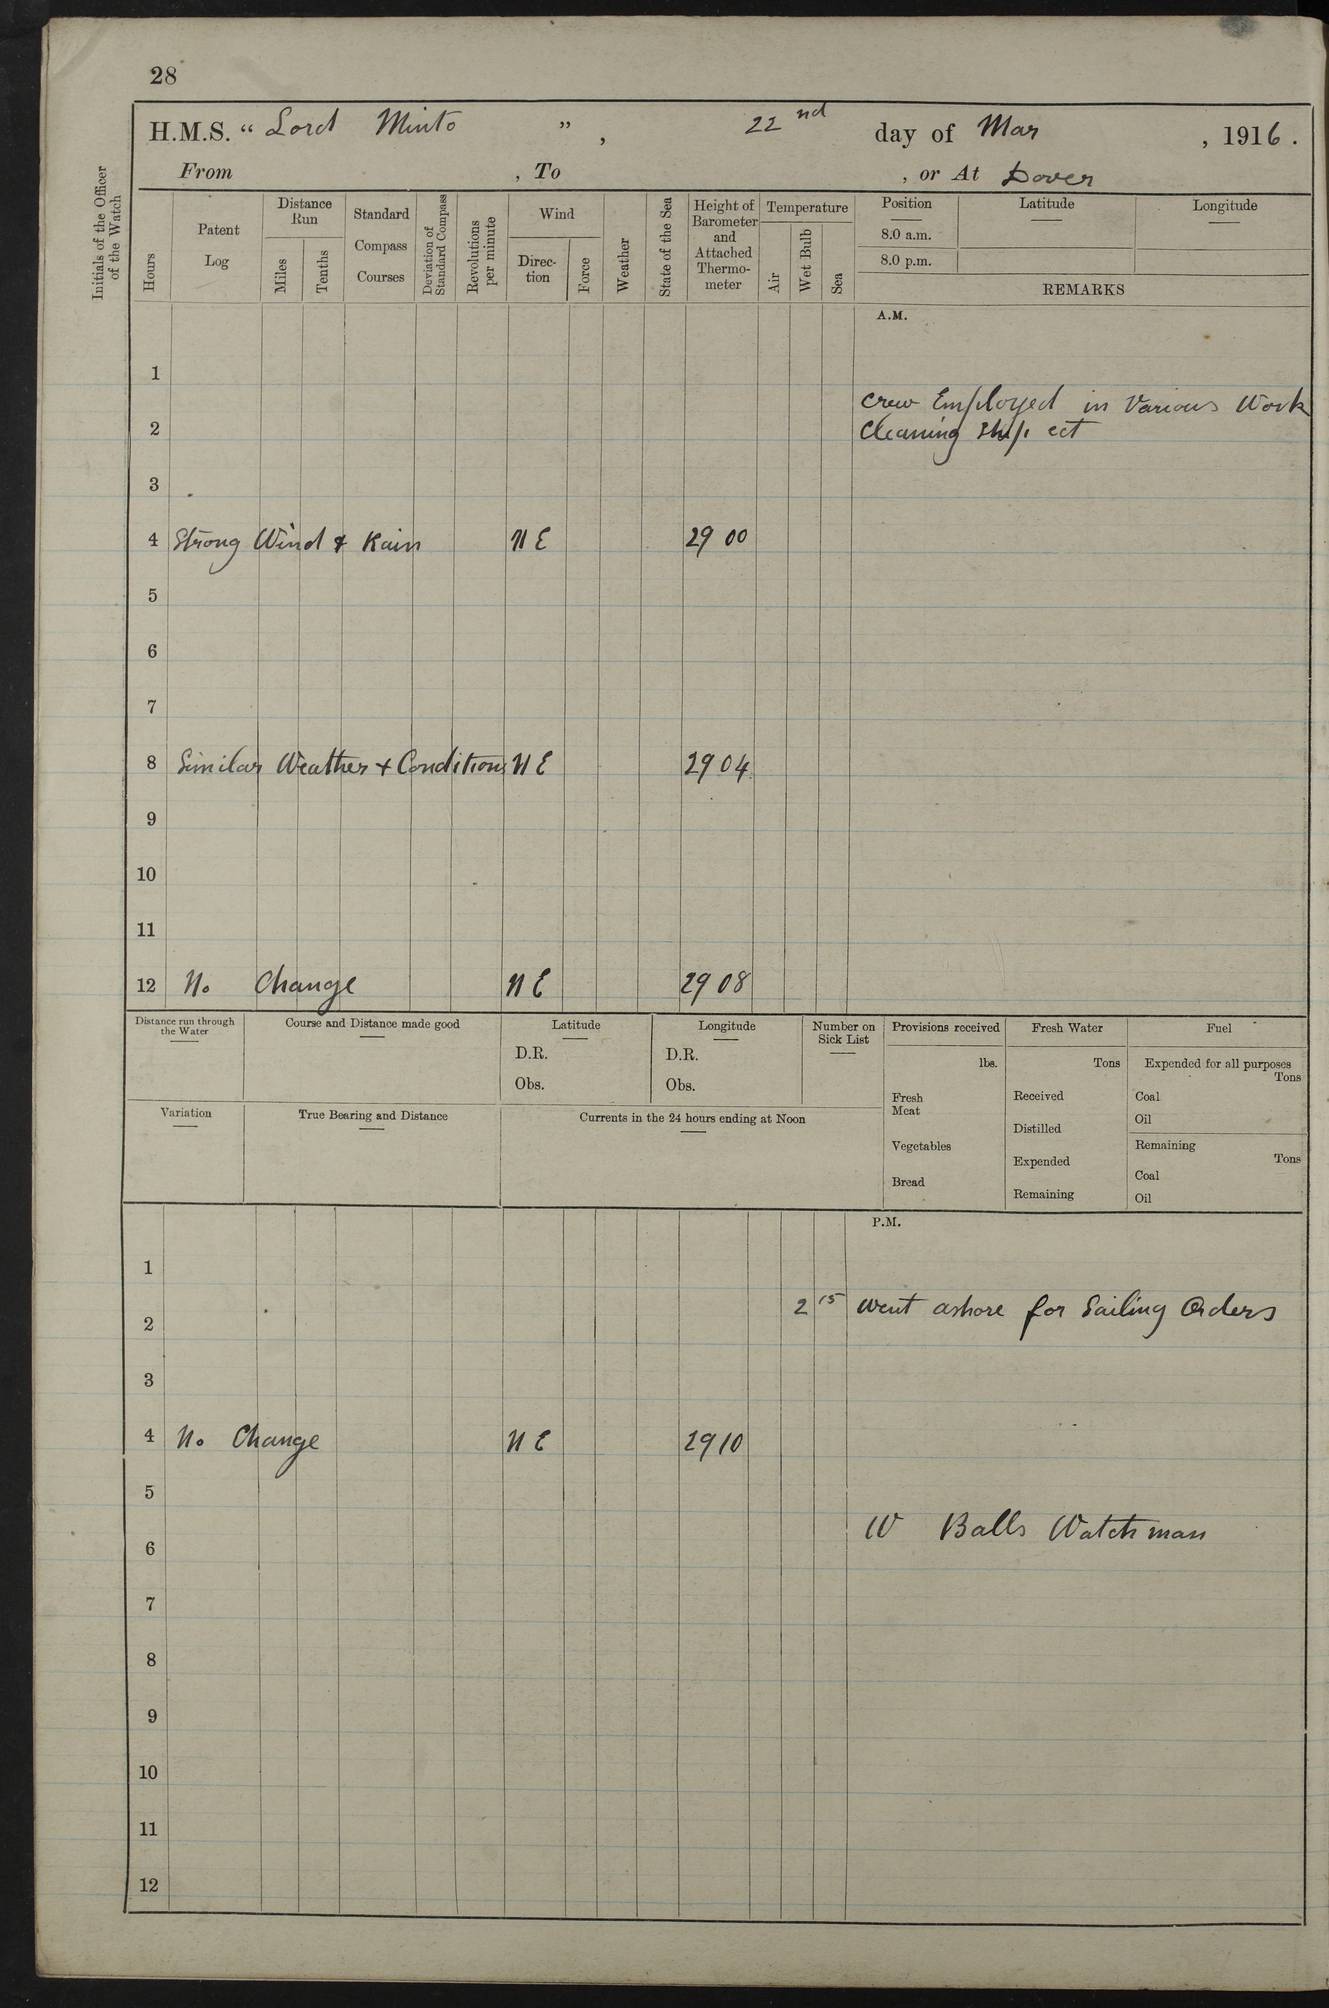 28
H.M.S. “ Lord Minto ” , 22nd day of Mar , 1916 .
From , To , or At Dover
Initials of the Officer
of the Watch
Hours
Patent
Log
Distance
Run
Miles
Tenths
Standard
Compass
Courses
Deviation of
Standard Compass
Revolutions
per minute
Wind
Direc-
tion
Force
Weather
State of the Sea
Height of
Barometer
and
Attached
Thermo-
meter
Temperature
Air
Wet Bulb
Sea
Position
8.0 a.m.
8.0 p.m.
Latitude
Longitude
REMARKS
A.M.
1
Crew Employed in Various Work
2 Cleaning Ship ect
3
4 Strong Wind & Rain N E 29 00
5
6
7
8 Similar Weather + Conditions N E 29 04
9
10
11
12 No Change N E 29 08
Distance run through
the Water
Course and Distance made good
Latitude
D.R.
Obs.
Longitude
D.R.
Obs.
Number on
Sick List
Variation
True Bearing and Distance
Currents in the 24 hours ending at Noon
Provisions received
lbs.
Fresh
Meat
Vegetables
Bread
Fresh Water
Tons
Received
Distilled
Expended
Remaining
Fuel
Expended for all purposes
Tons
Coal
Oil
Remaining
Tons
Coal
Oil
P.M.
1
2 15 went ashore for Sailing Orders
2
3
4 No Change N E 29 10
5
W Balls Watchman
6
7
8
9
10
11
12